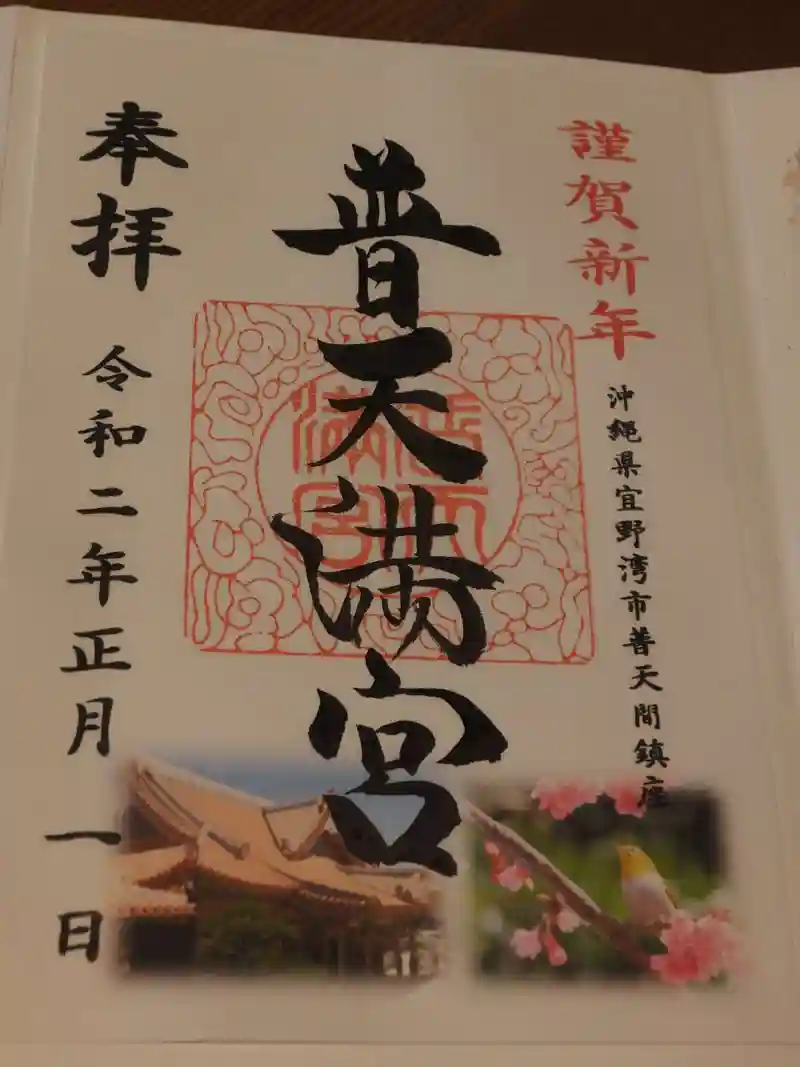 謹賀新年
沖縄県宜野湾市普天間鎮座
普天満宮
奉拝
令和二年正月一日